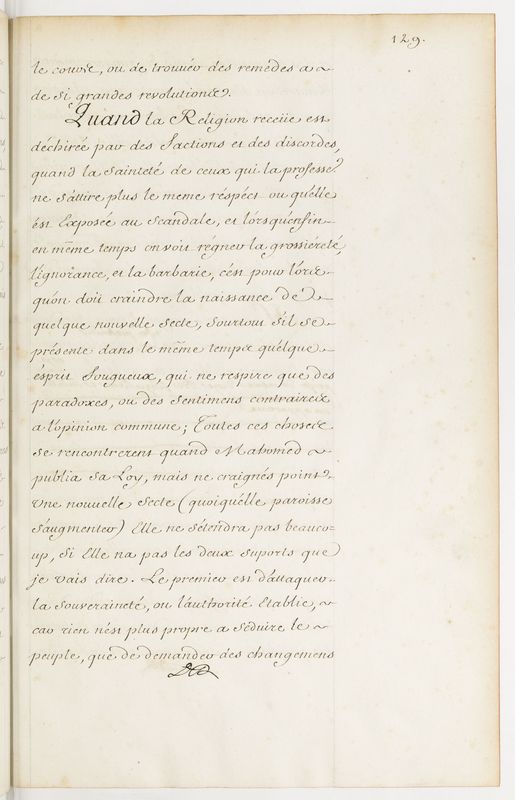 129.
le couvre, ou de trouuer des remèdes a
de si grandes revolutiones.
Quand la Religion receüe est
déchireé par des factions et des discordes,
quand la sainteté de ceux qui la professe
ne s'attire plus le meme réspéct ou qu'elle
ést Exposeé au Scandale, et lórsqu'enfin
en même temps on voit régner la grossiéreté,
l'ignorance, et la barbarie, c'ést pour lórs
qu'on doit craindre la naissance de
quelque nouvelle Secte, Sourtout s'il se
présente dans le même temps quélque
ésprit fougueux, qui ne respire que des
paradoxes, ou des sentimens contraires
a l'opinion commune; Toutes ces choses
se rencontrerent quand Mahomed
publia sa Loy, mais ne craignés point
Vne nouuelle Secte (quoiqu'élle paroisse
s'augmenter) Elle ne s'étendra pas beauco=
up, si Elle na pas les deux suports que
je vais dire. Le premier est d'attaquer
la souveraineté, ou l'authorité Etablie,
car rien n'ést plus propre a séduire le
peuple, que de demander des changemens